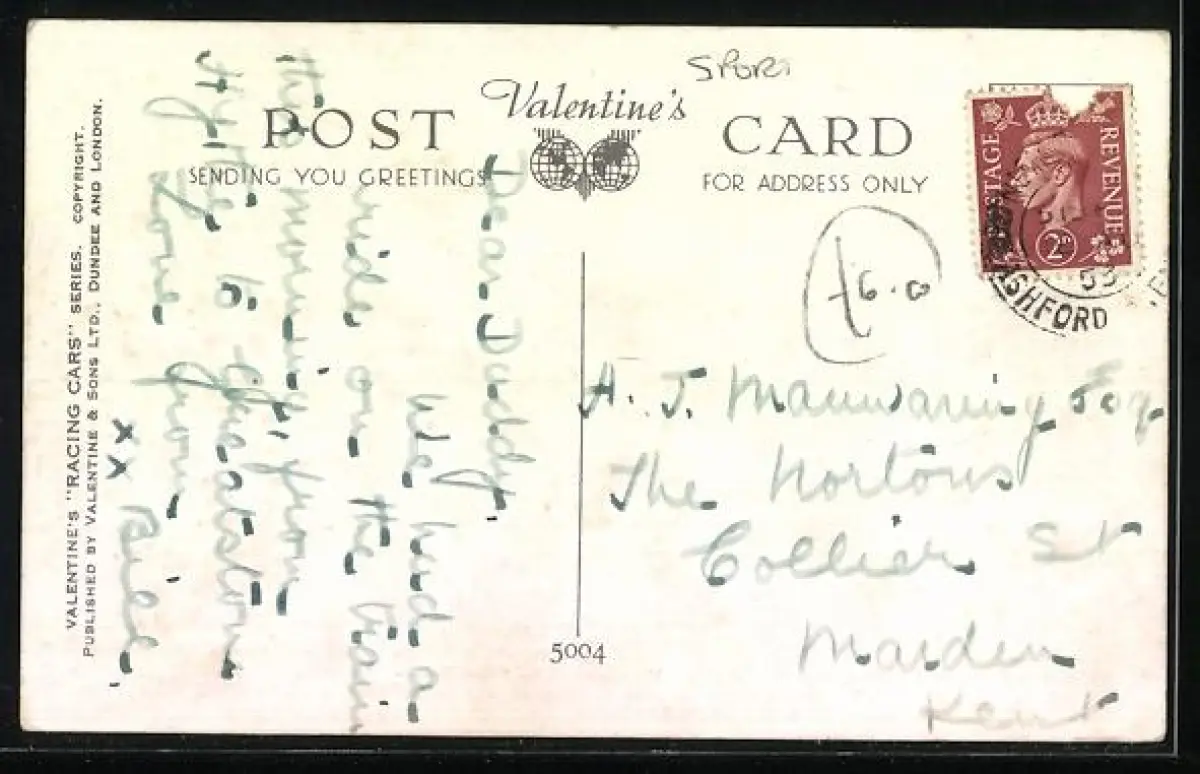 SPORT
Valentine's
POST CARD
SENDING YOU GREETINGS
FOR ADDRESS ONLY
VALENTINE'S "RACING CARS" SERIES. COPYRIGHT.
PUBLISHED BY VALENTINE & SONS LTD., DUNDEE AND LONDON.
Dear Daddy,
We had a
ride on the train
this morning, from
Hythe to
Love from
xx Bill.
5004
£6.0
POSTAGE REVENUE
2D
ASHFORD
53
A. J. Mannwaring Esq
The Nortons
Collier St
Marden
Kent